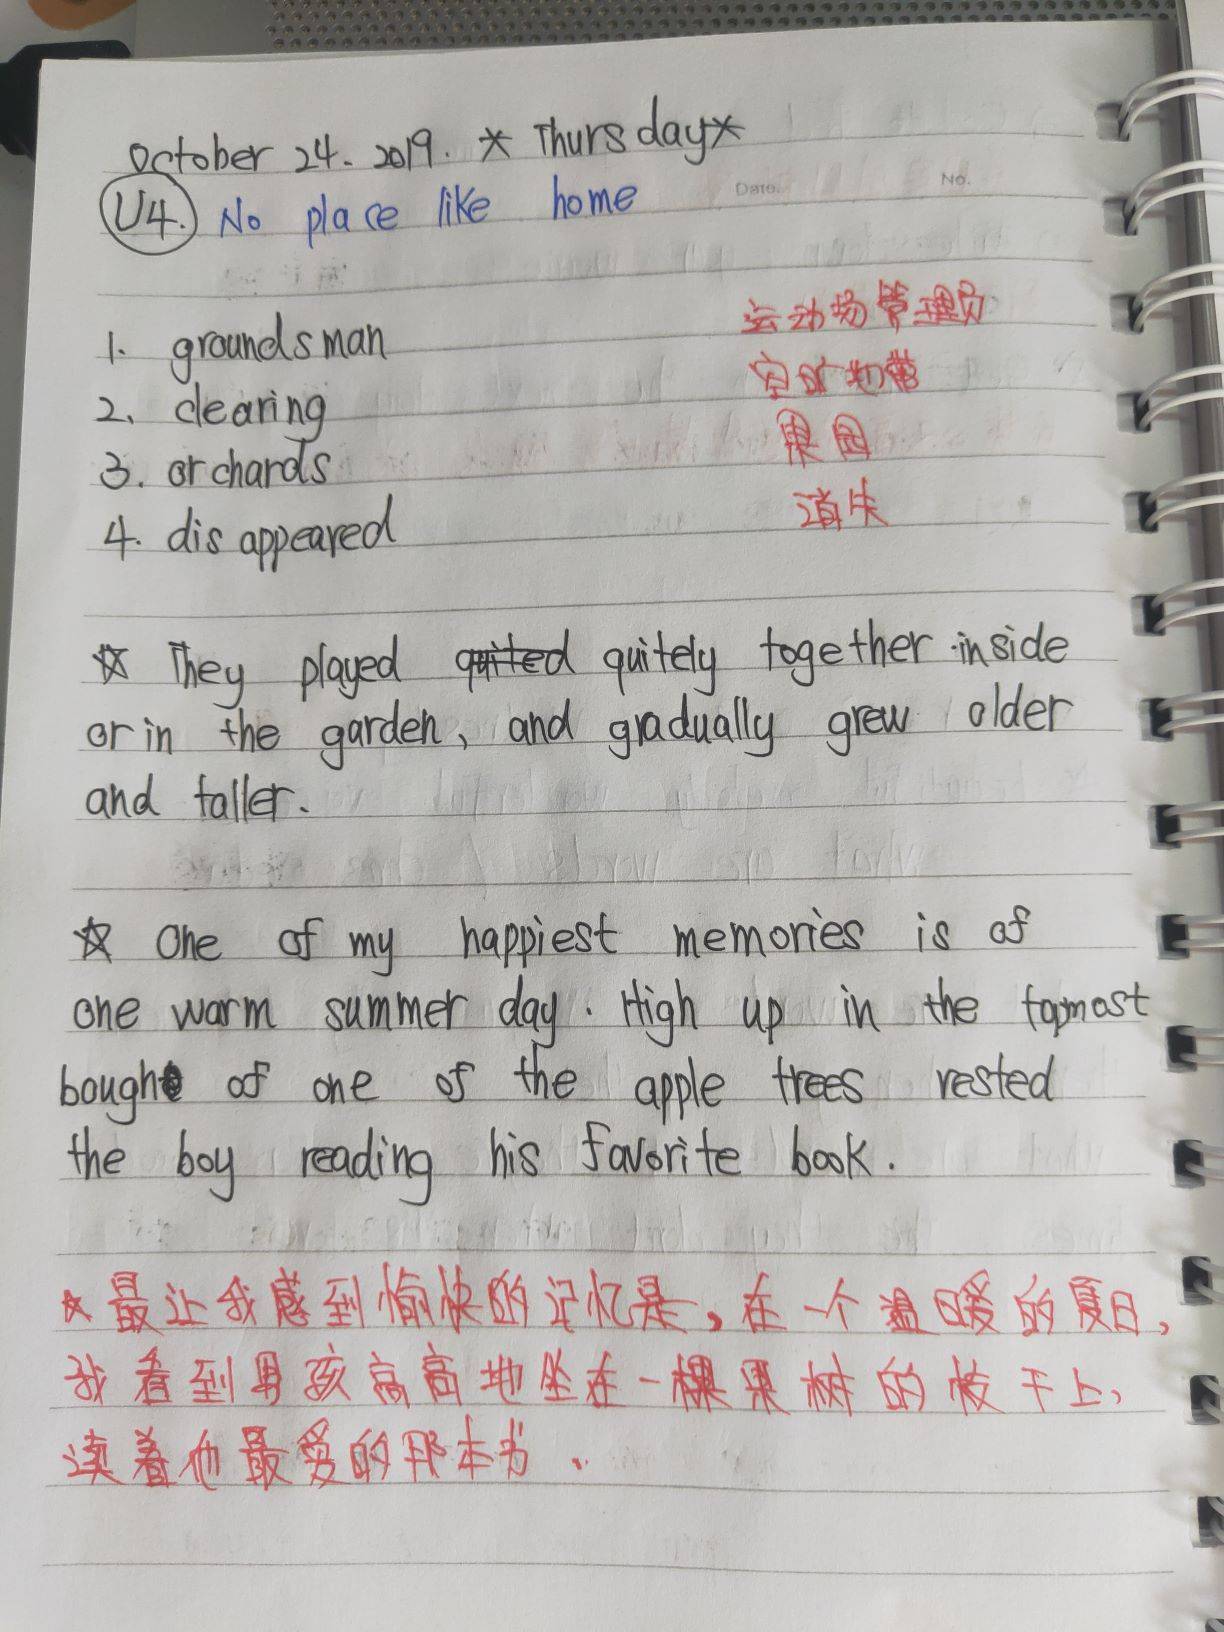 October 24. 2019. * Thursday*
U4. No place like home
Date. No.
1. groundsman 运动场管理员
2. clearing 空旷地带
3. orchards 果园
4. disappeared 消失
☆ They played quited quitely together inside
or in the garden, and gradually grew older
and taller.
☆ One of my happiest memories is of
one warm summer day. High up in the topmost
bough of one of the apple trees rested
the boy reading his favorite book.
☆ 最让我感到愉快的记忆是，在一个温暖的夏日，
我看到男孩高高地坐在一棵果树的枝干上，
读着他最爱的那本书．